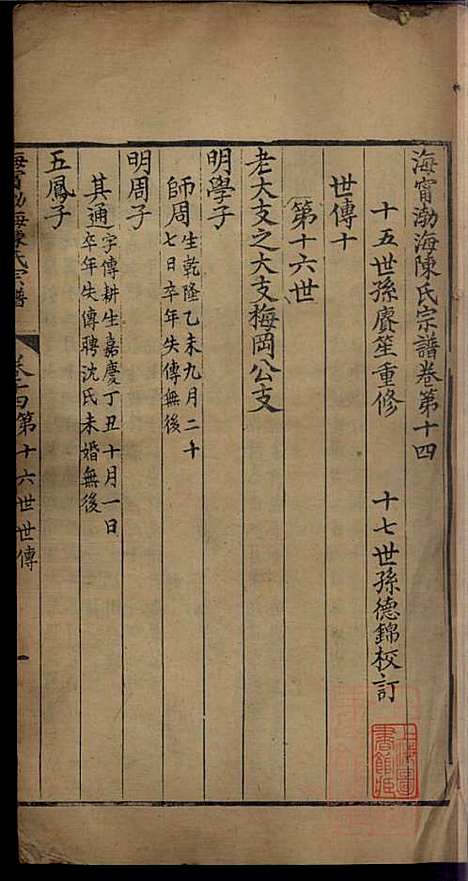 海甯渤海陳氏宗譜卷第十四
十五世孫賡笙重修　十七世孫德錦校訂
世傳十
第十六世
老大支之大支梅岡公支
明學子
師周 生乾隆乙未九月二十
七日卒年失傳無後
明周子
其通 字傳耕生嘉慶丁丑十月一日
卒年失傳聘沈氏未婚無後
五鳳子
海甯渤海陳氏宗譜 卷十四第十六世世傳 一
上海圖
書館藏